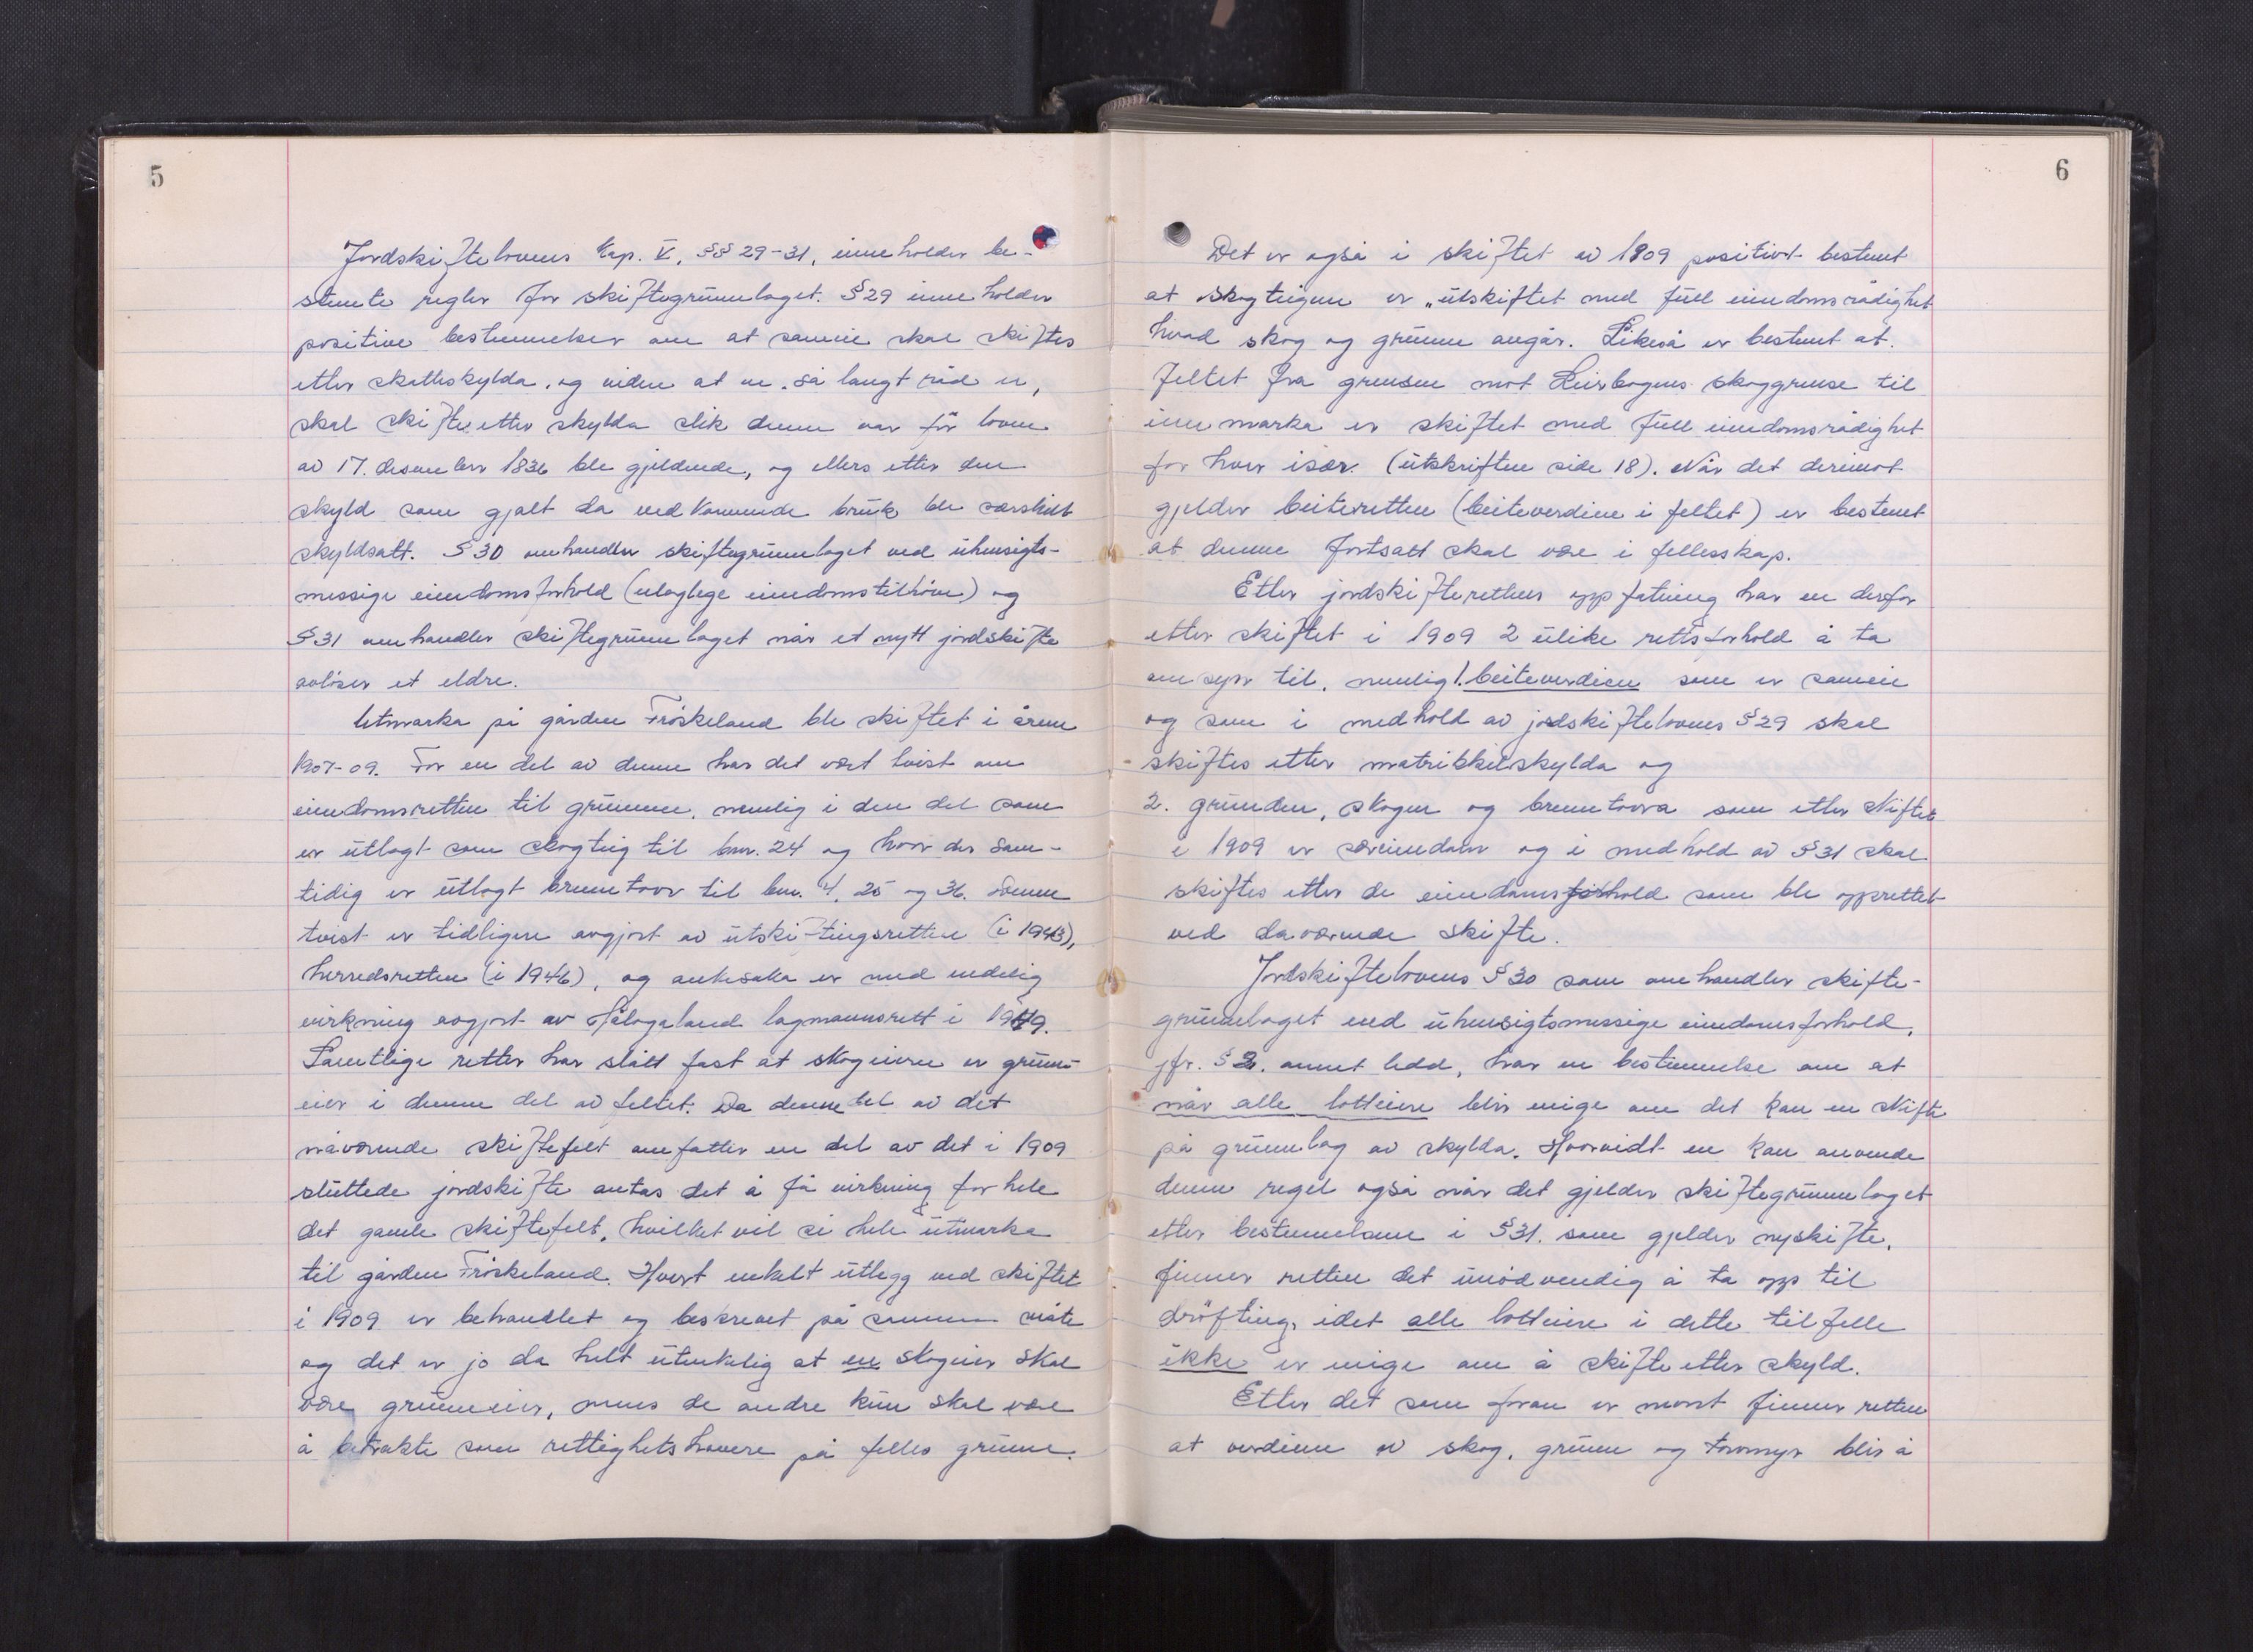 5
Jordskiftelovens Kap. V, §§ 29-31, inneholder be-
stemte regler for skiftegrunnlaget. § 29 inneholder
positive bestemmelser om at sameie skal skiftes
etter skatteskylda, og viden at en, så langt råd er,
skal skifte etter skylda slik denne var før loven
av 17. desember 1836 ble gjeldende, og ellers etter den
skyld som gjalt da vedkommende bruk ble særskilt
skyldsatt. § 30 omhandler skiftegrunnlaget ved uhensigts-
messige eiendomsforhold (ulaglege eiendomstilhöve) og
§ 31 omhandler skiftegrunnlaget når et nytt jordskifte
avlöser et eldre.
Utmarka på gården Fröskeland ble skiftet i årene
1907-09. For en del av denne har det vært tvist om
eiendomsretten til grunnen, nemlig i den del som
er utlagt som skogteig til bnr. 24 og hvor der sam-
tidig er utlagt brenntorv til bnr. 4, 25 og 36. Denne
tvist er tidligere avgjort av utskiftingsretten (i 1943),
herredsretten (i 1946), og ankesaka er med endelig
virkning avgjort av Hålogaland lagmannsrett i 1949.
Samtlige retter har slått fast at skogeieren er grunn-
eier i denne del av feltet. Da denne del av det
nåværende skiftefelt omfatter en del av det i 1909
sluttede jordskifte antas det å få virkning for hele
det gamle skiftefelt, hvilket vil si hele utmarka
til gården Fröskeland. Hvert enkelt utlegg ved skiftet
i 1909 er behandlet og beskrevet på samme måte
og det er jo da helt utenkelig at en skogeier skal
være grunneier, mens de andre kun skal være
å betrakte som rettighetshavere på felles grunn.
6
Det er også i skiftet av 1909 positivt bestemt
at skogteigene er „utskiftet med full eiendomsrådighet
hvad skog og grunn angår. Likeså er bestemt at
feltet fra grensen mot Leirbogens skoggrense til
innmarka er skiftet med full eiendomsrådighet
for hver især. (utskriften side 18). Når det derimot
gjelder beiteretten (beiteverdien i feltet) er bestemt
at denne fortsatt skal være i fellesskap.
Etter jordskifterettens oppfatning har en derfor
etter skiftet i 1909 2 ulike rettsforhold å ta
omsyn til, nemlig 1. beiteverdien som er sameie
og som i medhold av jordskiftelovens § 29 skal
skiftes etter matrikkelskylda og
2. grunnen, skogen og brenntorva som etter skiftet
i 1909 er særeiendom og i medhold av § 31 skal
skiftes etter de eiendomsforhold som ble opprettet
ved daværende skifte.
Jordskiftelovens § 30 som omhandler skifte-
grunnlaget ved uhensigtsmessige eiendomsforhold,
jfr. § 2. annet ledd, har en bestemmelse om at
når alle lotteiere blir enige om det kan en skifte
på grunnlag av skylda. Hvorvidt en kan anvende
denne regel også når det gjelder skiftegrunnlaget
etter bestemmelsene i § 31. som gjelder nyskifte,
finner retten det unödvendig å ta opp til
dröfting, idet alle lotteiere i dette tilfelle
ikke er enige om å skifte etter skyld.
Etter det som foran er nevnt finner retten
at verdiene av skog, grunn og torvmyr blir å